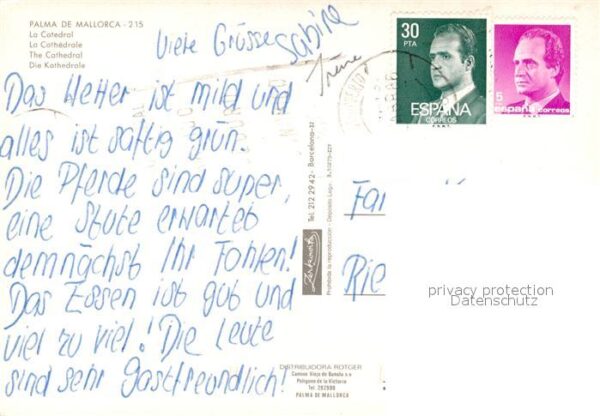 PALMA DE MALLORCA - 215
La Catedral
La Cathédrale
The Cathedral
Die Kathedrale
Viele Grüsse Sabine
Irene
Das Wetter ist mild und
alles ist saftig grün.
Die Pferde sind super,
eine Stute erwartet
demnächst Ihr Fohlen!
Das Essen ist gut und
viel zu viel! Die Leute
sind sehr Gastfreundlich!
30
PTA
ESPAÑA
CORREOS
5
españa correos
Tel. 212 29 42 - Barcelona-32
Prohibida la reproducción - Depósito Legal
Fa
Rie
privacy protection
Datenschutz
DISTRIBUIDORA ROTGER
Camino Viejo de Buñola s-n
Polígono de la Victoria
PALMA DE MALLORCA